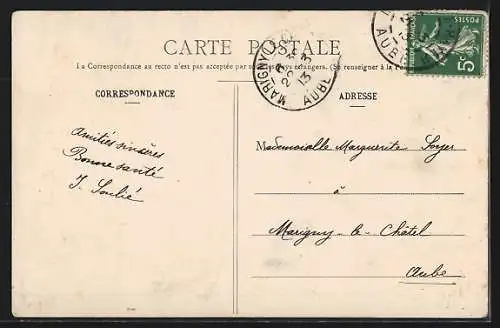 CARTE POSTALE
La Correspondance au recto n'est pas acceptée par tous les pays étrangers. (Se renseigner à la
CORRESPONDANCE
ADRESSE
POSTES
5c
AUBE
MARIGNY
22-3
13
AUBE
Amitiés sincères
Bonne santé
J. Soulié
Mademoiselle Marguerite Soyer
à
Marigny-le-Châtel
Aube